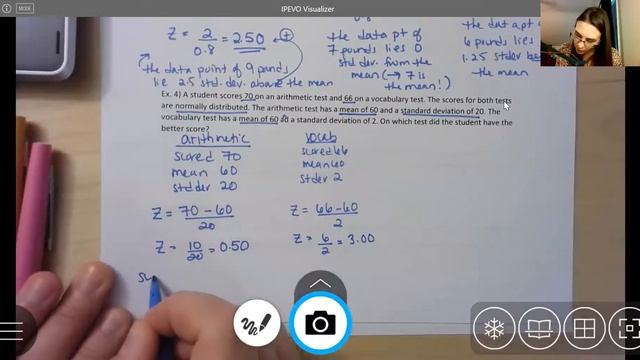 IPEVO Visualizer
MODE
Z = 2/0.8 = 2.50 +
0.8
the data pt of
7 pounds lies 0
std dev. from the
mean (→ 7 is
the mean!)
the data pt of
6 pounds lies
1.25 stdev
the mean
the data point of 9 pounds
lie 2.5 std. dev. above the mean
Ex. 4) A student scores 70 on an arithmetic test and 66 on a vocabulary test. The scores for both tests
are normally distributed. The arithmetic test has a mean of 60 and a standard deviation of 20. The
vocabulary test has a mean of 60 and a standard deviation of 2. On which test did the student have the
better score?
arithmetic
scored 70
mean 60
std dev 20
Z = 70 - 60/20
Z = 10/20 = 0.50
vocab
scored 66
mean 60
st dev 2
Z = 66 - 60/2
Z = 6/2 = 3.00